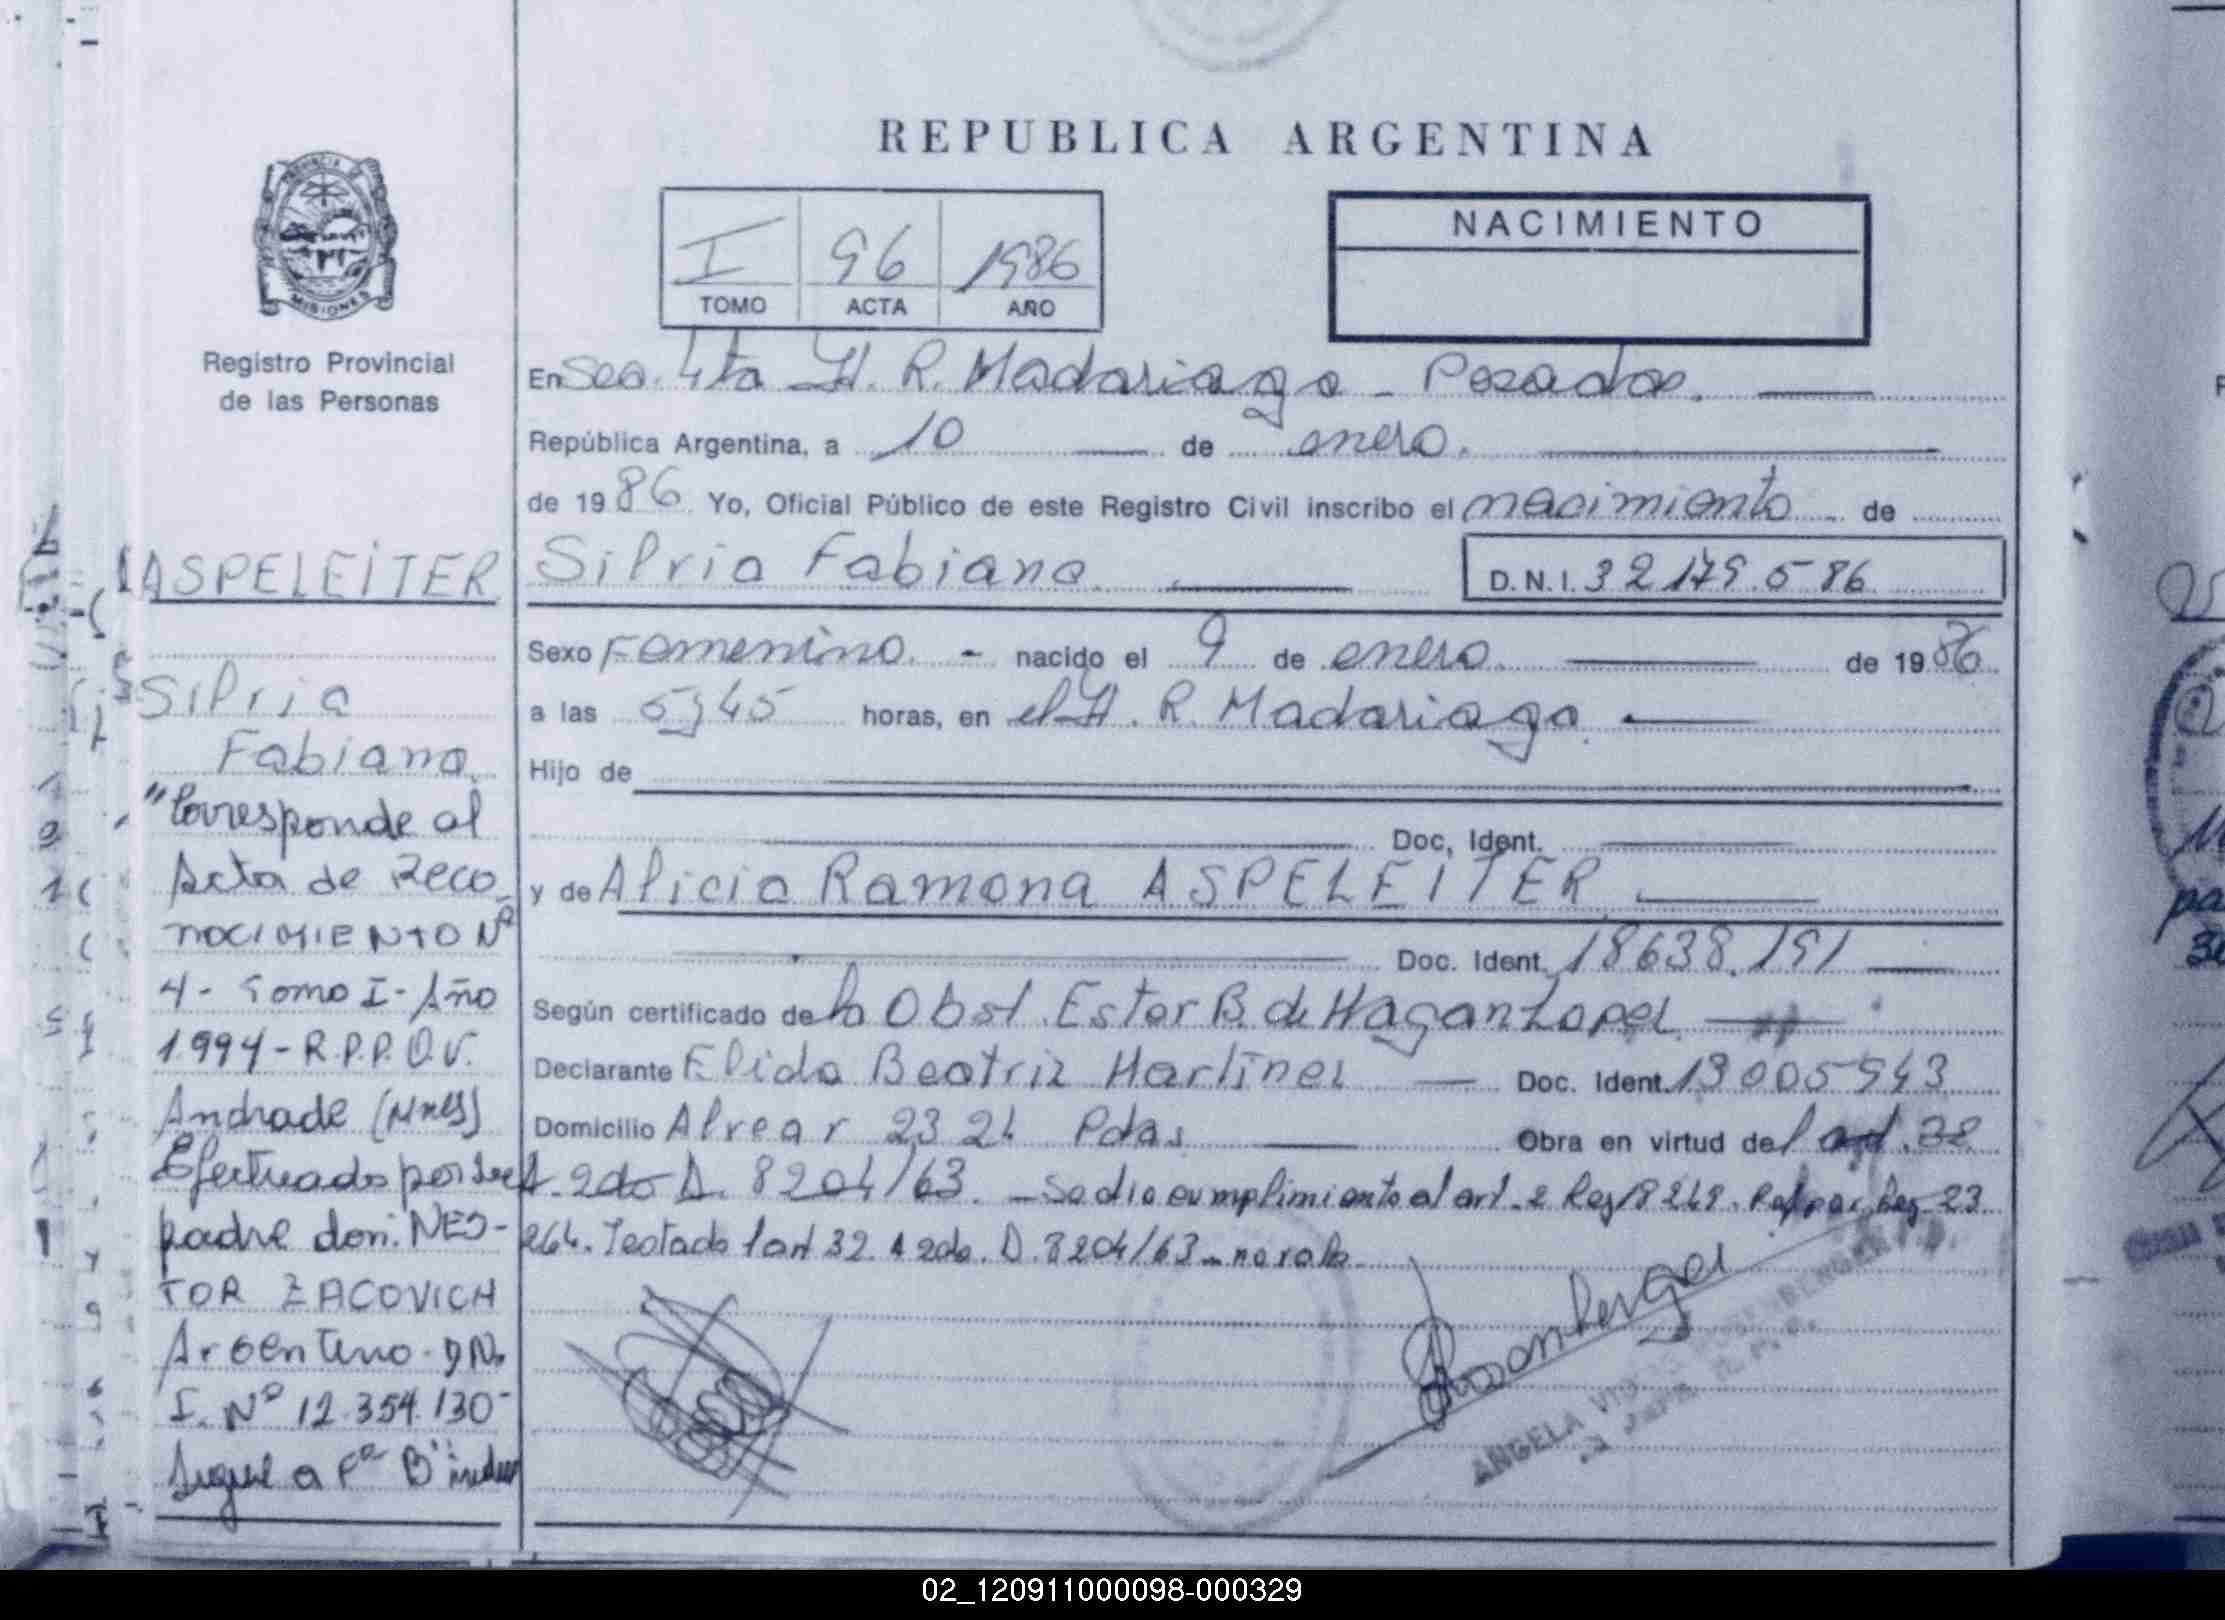 REPUBLICA ARGENTINA
I 96 1986
TOMO ACTA AÑO
NACIMIENTO
MISIONES
Registro Provincial
de las Personas
En Sec. 4ta H. R. Madariaga - Posadas.
República Argentina, a 10 de enero.
de 1986 Yo, Oficial Público de este Registro Civil inscribo el nacimiento de
Silvia Fabiana D.N.I. 32179.586
Sexo Femenino. - nacido el 9 de enero de 1986
a las 5,45 horas, en el H. R. Madariaga.
Hijo de
Doc, Ident.
y de Alicia Ramona ASPELEITER
Doc. Ident. 18638.191
Según certificado de la Obst. Ester B. de Hagan Lopez
Declarante Elida Beatriz Martinez Doc. Ident. 13005943
Domicilio Alvear 2324 Pdas. Obra en virtud del art. 32
A. 2do D. 8204/63. - Se dio cumplimiento al art. 2 Ley 18248. Ley 23
264. Testado l art 32 A 2do. D. 8204/63 - no vale.
Rosenberger
ANGELA
ASPELEITER
Silvia
Fabiana.
"Corresponde al
Acta de Reco_
NOCIMIENTO Nº
4 - Tomo I - Año
1994 - R.P.P. O.V.
Andrade (Mnes)
Efectuado por su
padre don: NES-
TOR ZACOVICH
Argentino - D.N.
I. Nº 12.354.130 -
Sigue a Fª "B"
02_120911000098-000329